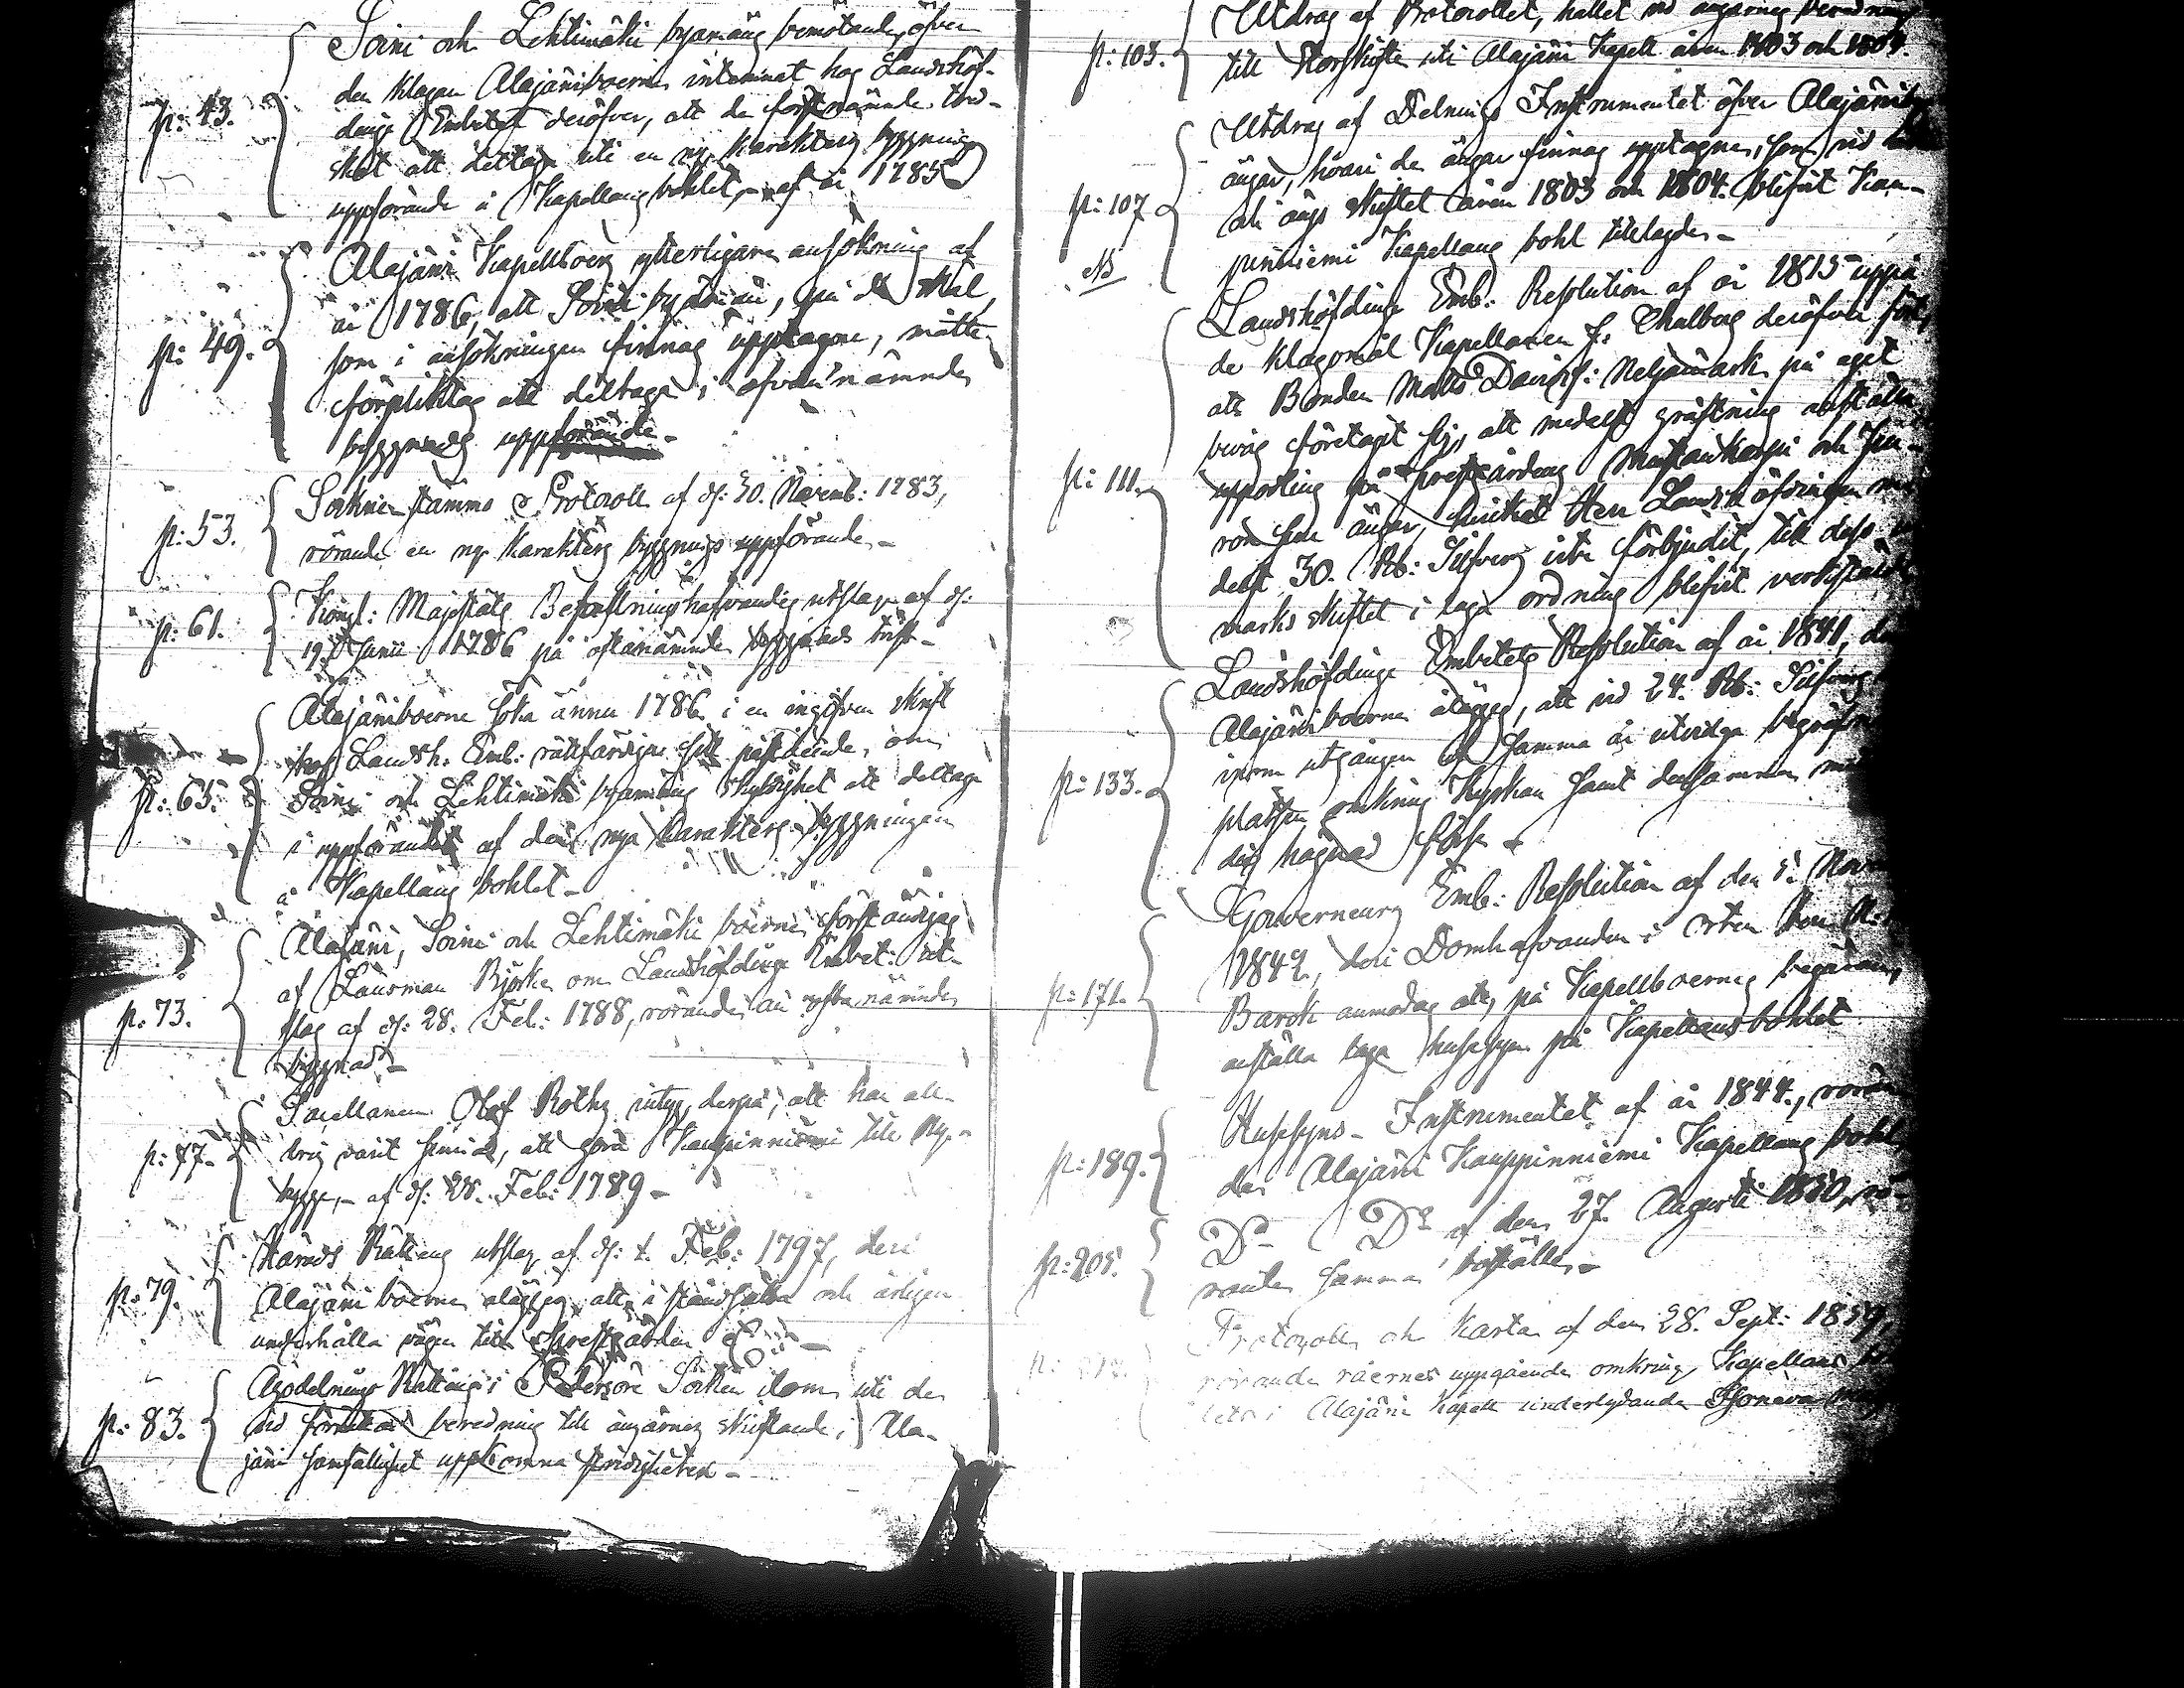 Soini och Lehtimäki byamäns bemötande, öfver
p: 43. den klagan Alajärviboerne intaminat hos Landshöf-
dinge Embetet deröfver, att de förstnämnde tred-
skat att deltaga uti en ny Karakters byggnings
uppförande å Kapellans bohlet, af år 1785
Alajärvi Kapellboers ytterligare ansökning af
år 1786, att Soini byamän, på de skäl,
p: 49. som i ansökningen finnas upptagne, måtte
förpliktas att deltaga i ofvannämnde
byggnads uppförande.
p: 53. Sockne stämmo Protocoll af d: 30. Novemb: 1783,
rörande en ny Karakters byggnings uppförande.
p: 61. Kongl: Majestäts Befallningshafvandes utslag af d:
19. Junii 1786 på oftanämnde byggnads tvist-
Alajärviboerne söka ännu 1786 i en ingifven skrift
hos Landsh. Emb: rättfärdiga sitt påstående, om
p: 65. Soini och Lehtimäki byamäns skyldighet att deltaga
i uppförandet af den nya Karakters byggningen
å Kapellans bohlet-
Alajärvi, Soini och Lehtimäki boerne förständigas
af Länsman Björk om Landshöfdinge Embet: ut-
p: 73. slag af d: 28. Feb: 1788, rörande oftanämnde
byggnad-
Sacellanen Olof Roths intyg derpå, att han ald-
p: 77. rig varit sinnad, att göra Kauppinniemi till Ny-
bygge,- af d: 28. Feb: 1789-
Härads Rättens utslag af d: 1. Feb: 1797, deri
p: 79. Alajärvi boerne ålägges att i ståndsätta och årligen
underhålla vägen till Prestgården
Ägodelnings Rättens i Pedersöre Socken dom uti de
p: 83. vid beredning till ängarnes skiftande i Ala-
järvi samfällighet uppkomna stridigheter-
Utdrag af Protocollet, hållet vid ängarnes beredning
p: 103. till Storskifte uti Alajärvi Kapell åren 1803 och 1804.
Utdrag af Delnings Instrumentet öfver Alajärvi
ängar, hvari de ängar finnas upptagne, som vid
p: 107 ängs skiftet åren 1803 och 1804. blifvit Kau-
NB pinniemi Kapellans bohl tillagde-
Landshöfdinge Emb: Resolution af år 1815 uppå
de klagomål Kapellanen J. Chalberg deröfver fört,
att Bonden Matts Davids: Neljämark på eget
bevåg företagit sig, att medelst gräftning anställa
p: 111. uppodling på prestgårdens och
ängar, hvilket Herr Landshöfdingen
delst 30. Rb: Silfvers vite förbjudit, till dess
marks skiftet i laga ordning blifvit verkstäldt
Landshöfdinge Embetets Resolution af år 1841,
Alajärviboerne ålägges, att vid 24. Rb: Silfvers
inom utgången af samma år utvidga begrafn
p: 133. platsen omkring Kyrkan samt densamma
dig hägnad förse
Gouverneurs Emb: Resolution af den 5. Nov
1842, deri Domhafvanden i Orten
p: 171. Barck anmodas att, på Kapellboernes begäran,
anställa laga husesyn på Kapellansbohlet
Husesyns-Instrumentet af år 1844., rörn
p: 189. de Alajärvi Kauppinniemi Kapellans bohl
D:o D:o af den 27. Augusti 1850, rö-
p: 205. rande samma boställe-
Protocoll och Karta af den 28. Sept: 1859,
rörande råernes uppgående omkring Kapellans
i Alajärvi Kapell underlydande